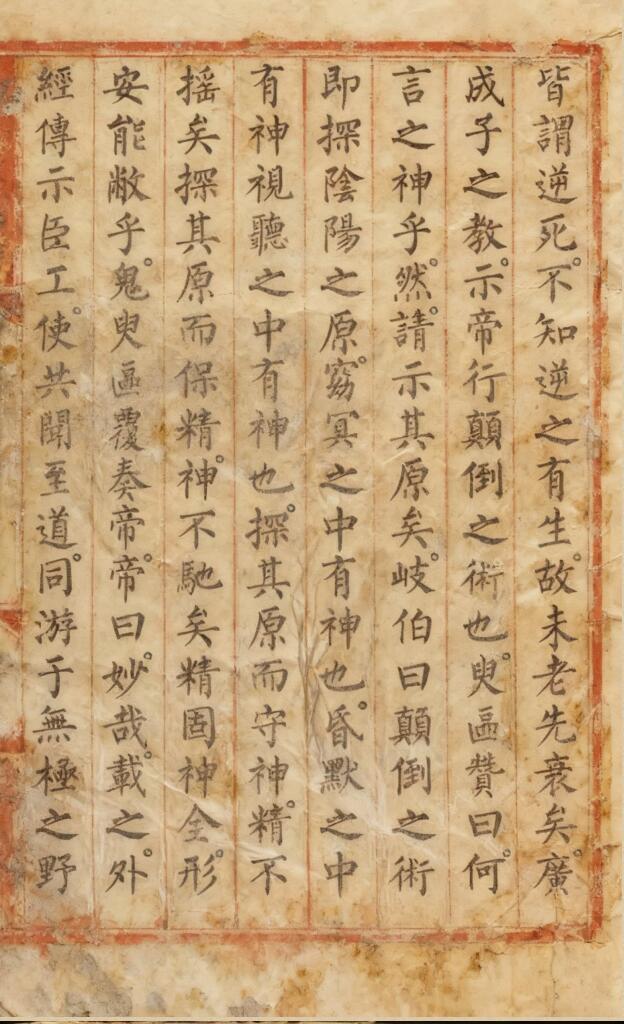 皆謂逆死。不知逆之有生。故未老先衰矣。廣
成子之教。示帝行顛倒之術也。臾區贊曰。何
言之神乎。然。請示其原矣。岐伯曰顛倒之術
即探陰陽之原。窈冥之中有神也。昏默之中
有神視聽之中有神也。探其原而守神。精不
搖矣探其原而保精。神不馳矣精固神全。形。
安能敝乎。鬼臾區覆奏帝。帝曰妙哉。載之外。
經傳示臣工。使共聞至道。同游于無極之野